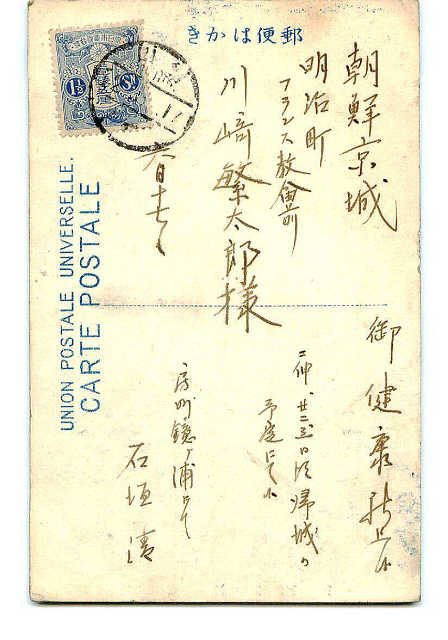 きかは便郵
UNION POSTALE UNIVERSELLE.
CARTE POSTALE
朝鮮京城
明治町
フランス教會前
川崎繁太郎様
御健康祈上候
二伸、廿二三日頃帰城の
予定にて候
房州鏡ヶ浦にて
石垣